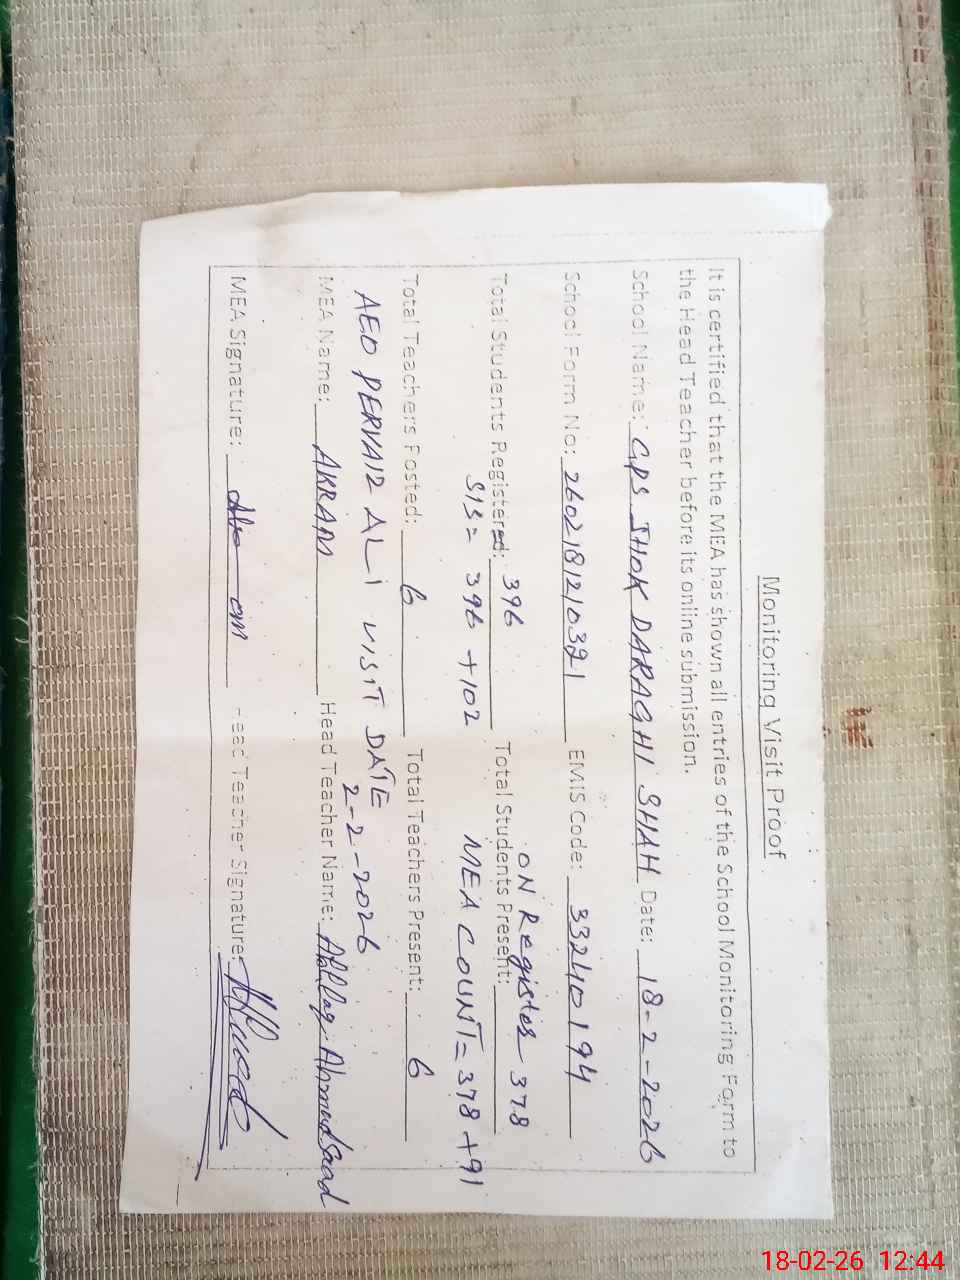 Monitoring Visit Proof
It is certified that the MEA has shown all entries of the School Monitoring Form to
the Head Teacher before its online submission.
School Name: GPS JHOK DARAGHI SHAH Date: 18-2-2026
School Form No: EMIS Code: 33240194
ON Register 378
Total Students Registered: 396 Total Students Present:
SIS = 396 +102 MEA COUNT = 378 +91
Total Teachers Posted: 6 Total Teachers Present: 6
AEO PERVAIZ ALI VISIT DATE
2-2-2026
MEA Name: AKRAM Head Teacher Name: Ahmed Saad
MEA Signature: Head Teacher Signature:
18-02-26 12:44